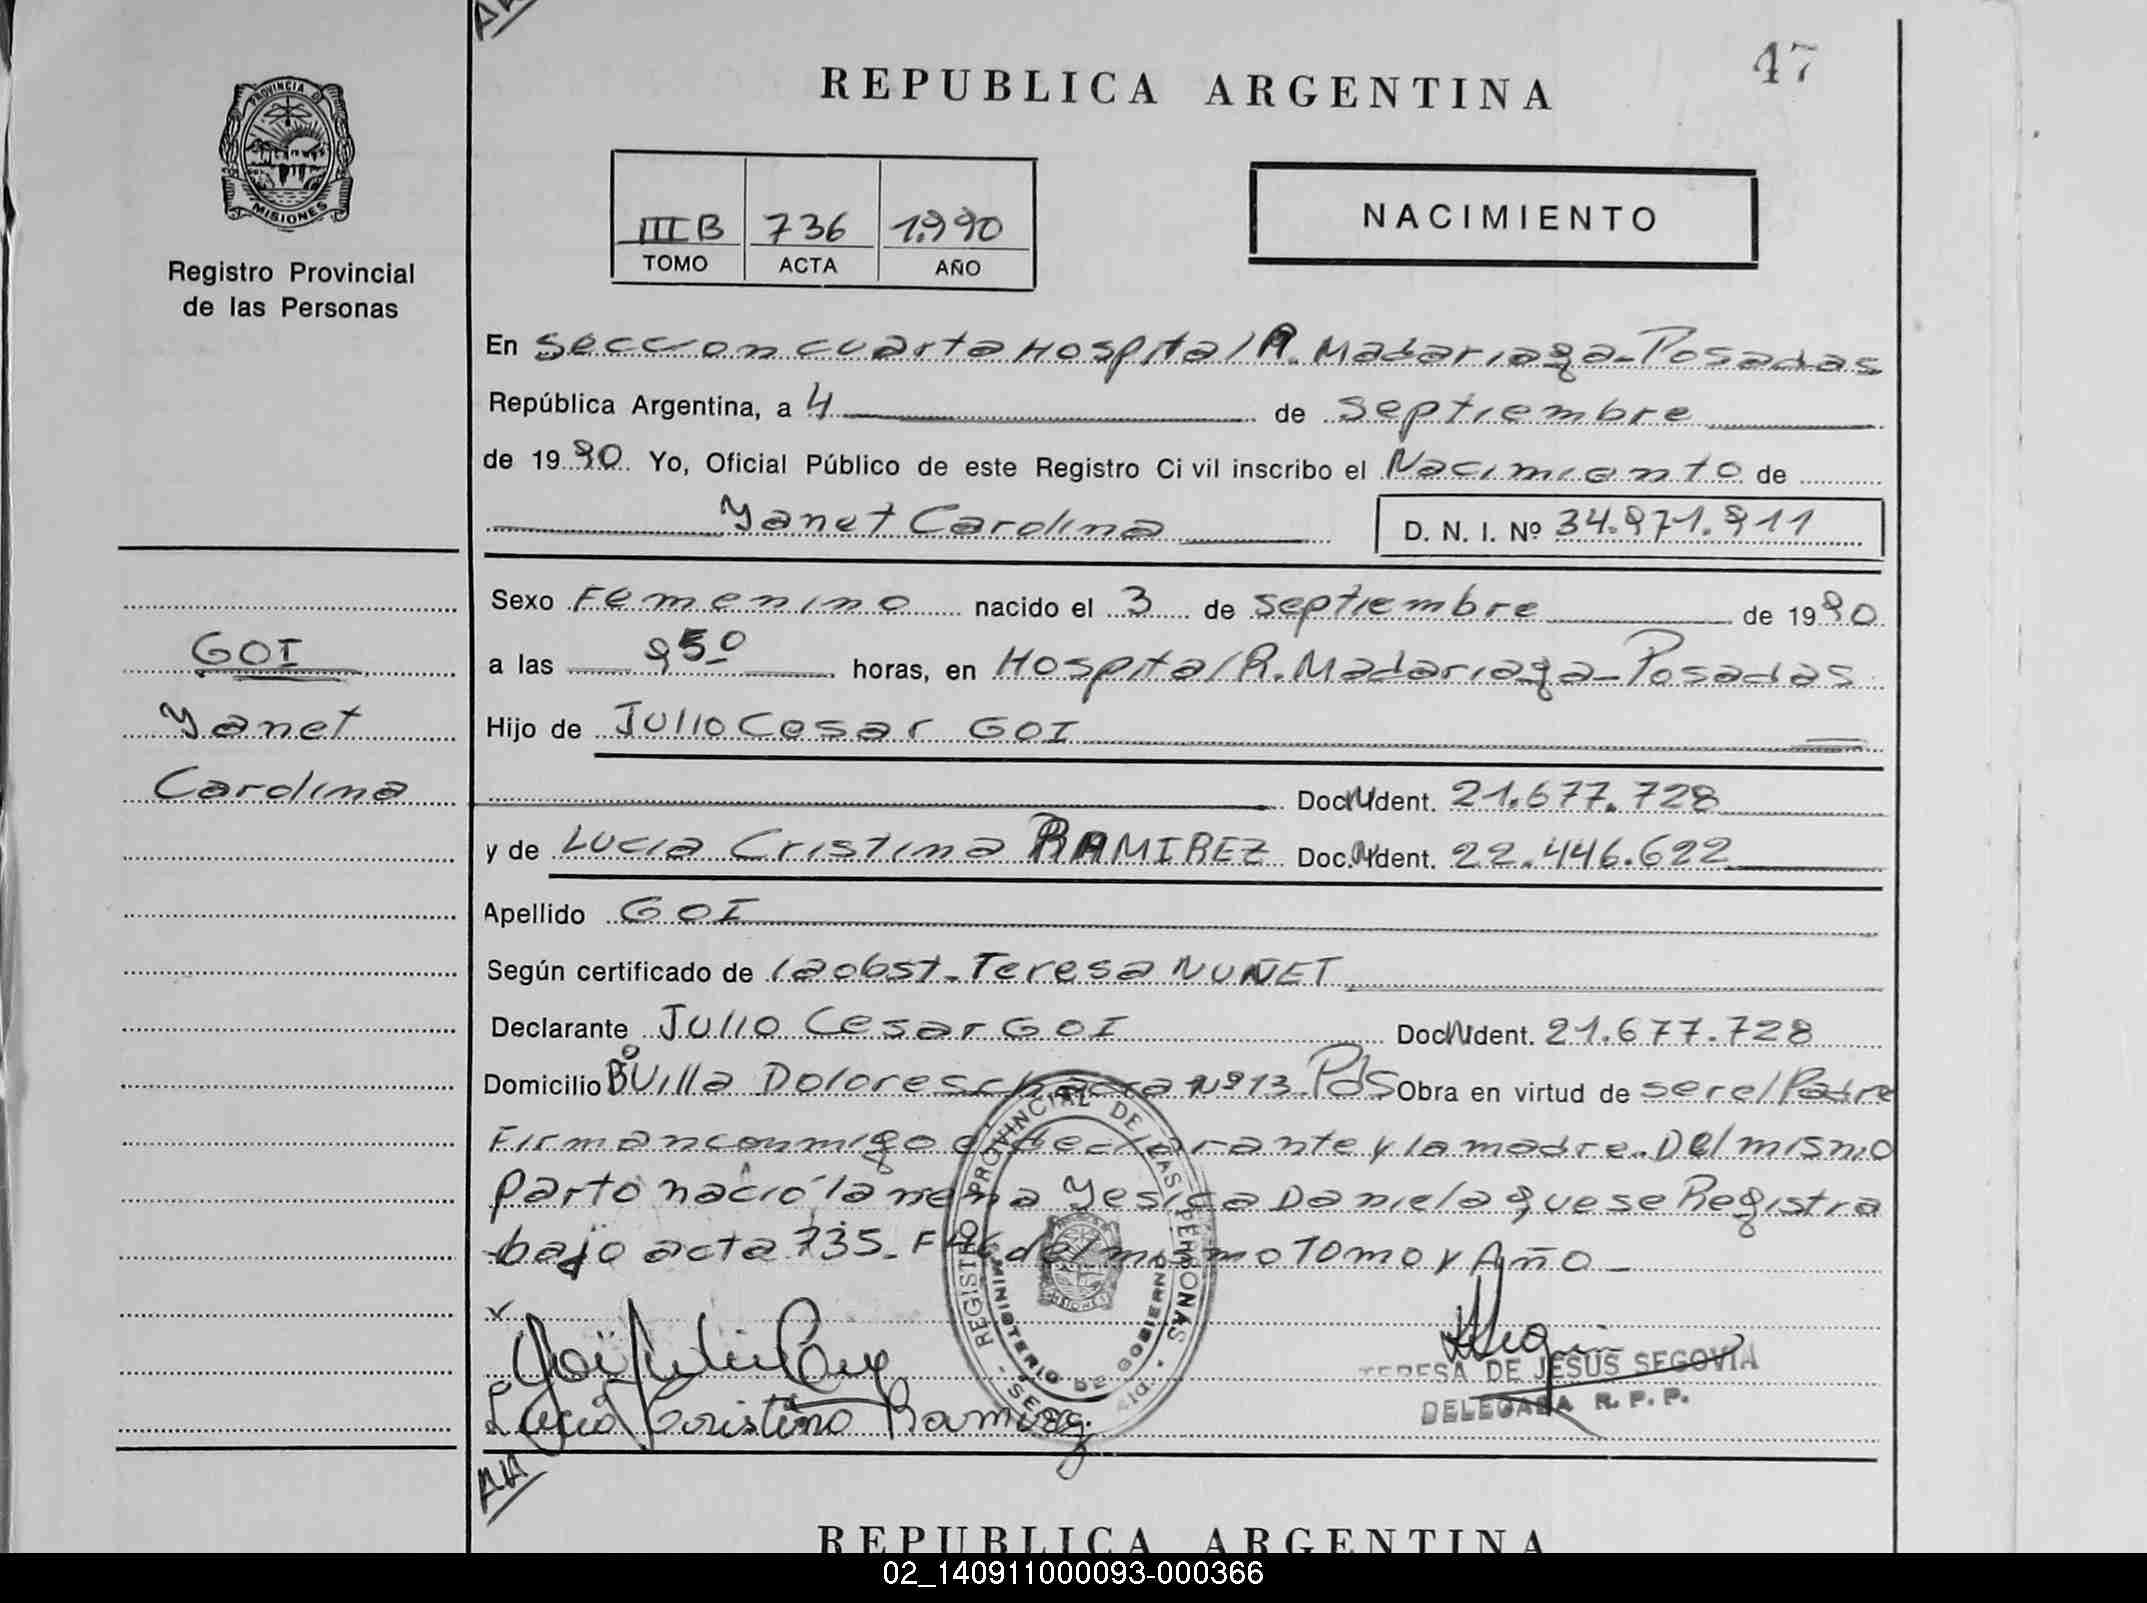 AA
47
REPUBLICA ARGENTINA
PROVINCIA D
MISIONES
Registro Provincial
de las Personas
III B 736 1.990
TOMO ACTA AÑO
NACIMIENTO
En Seccion cuarta Hospital R. Madariaga - Posadas
República Argentina, a 4 de Septiembre
de 1990 Yo, Oficial Público de este Registro Civil inscribo el Nacimiento de
Yanet Carolina D. N. I. Nº 34.971.911
Sexo Femenino nacido el 3 de Septiembre de 1990
GOI
a las 9 50 horas, en Hospital R. Madariaga - Posadas
Yanet
Hijo de Julio Cesar GOI
Carolina
Doc. Ident. 21.677.728
y de Lucia Cristina RAMIREZ Doc. Ident. 22.446.622
Apellido GOI
Según certificado de la obst. Teresa NUÑET
Declarante Julio Cesar GOI Doc. Ident. 21.677.728
Domicilio Bº Villa Dolores chacra Nº 13 - Pdas Obra en virtud de ser el Padre
Firman conmigo el declarante y la madre. Del mismo
parto nació la nena Yesica Daniela que se Registra
bajo acta 735 - F 46 del mismo Tomo y Año -
REGISTRO PROVINCIAL DE LAS PERSONAS
MINISTERIO DE GOBIERNO
Goi Julio Cesar
TERESA DE JESUS SEGOVIA
DELEGADA R. P. P.
Lucia Cristina Ramirez
AA
REPUBLICA ARGENTINA
02_140911000093-000366